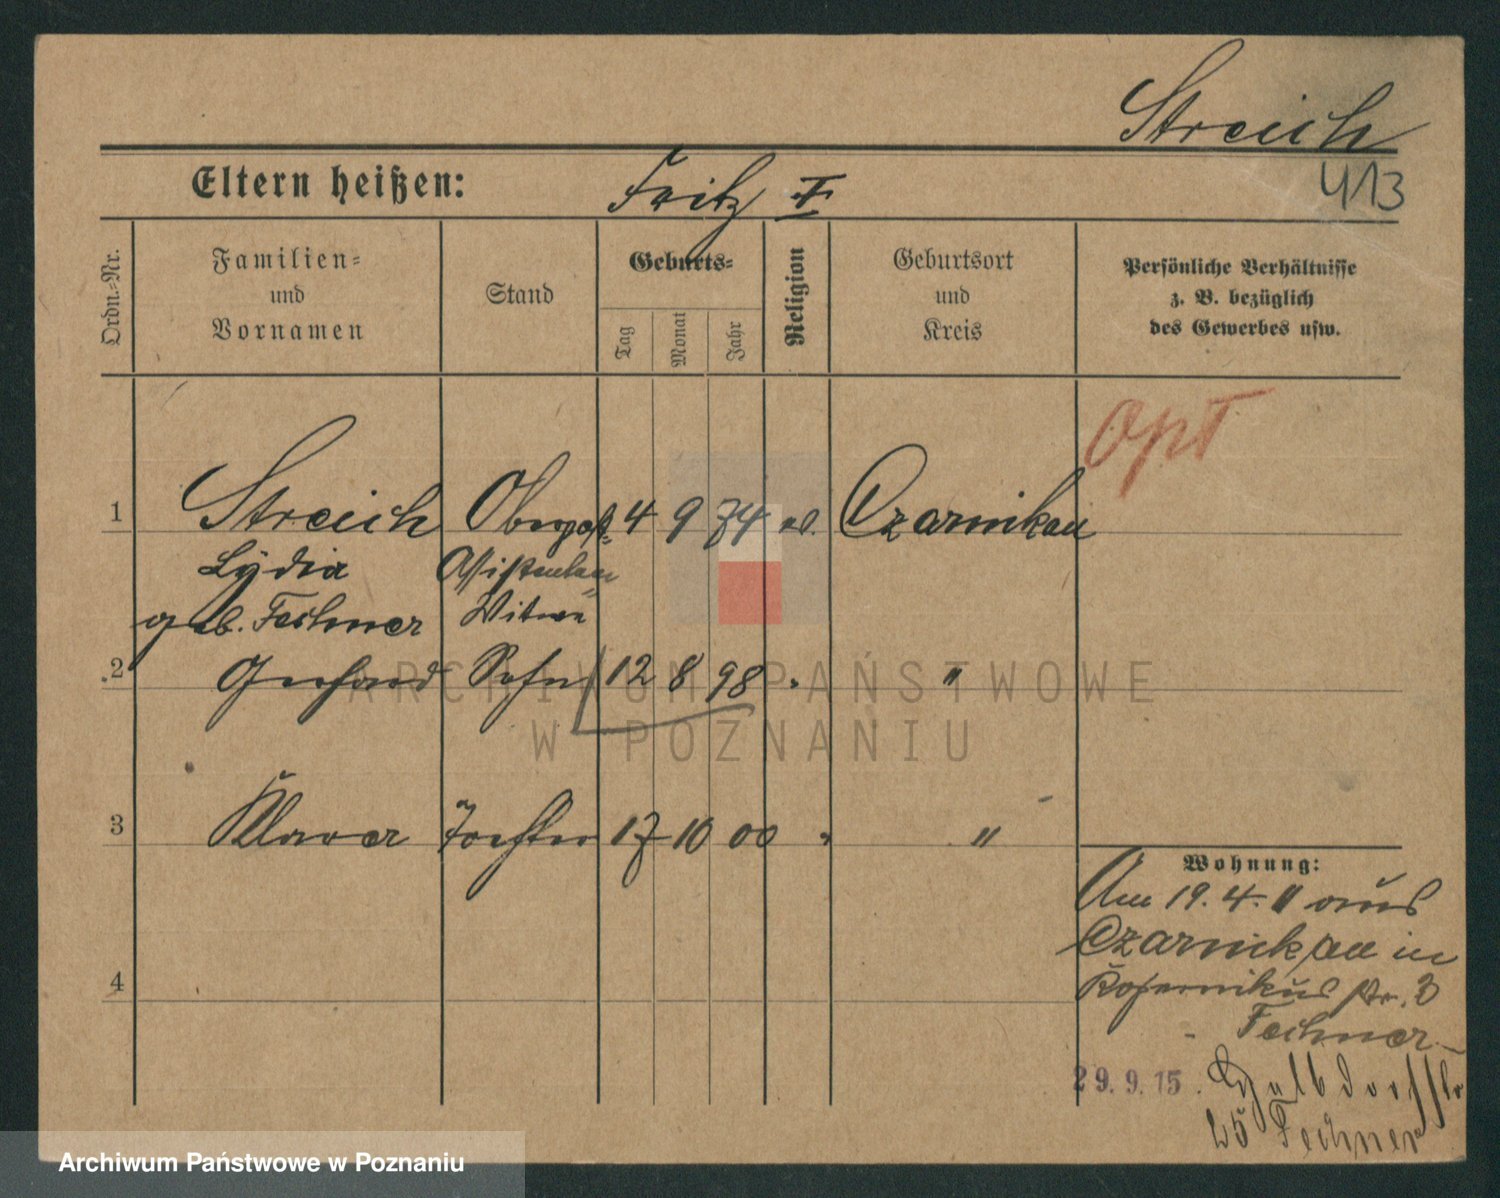 Streich
413
Eltern heißen: Fritz †
Ordn.-Nr.
Familien-
und
Vornamen
Stand
Geburts-
Tag
Monat
Jahr
Religion
Geburtsort
und
Kreis
Persönliche Verhältnisse
z. B. bezüglich
des Gewerbes usw.
Opt
1 Streich Oberpost- 4 9 74 ev. Czarnikau
Lydia Assistenten
geb. Fechner Witwe
2 Gerhard Sohn 12 8 98 " "
3 Klara Tochter 17 10 00 " "
4
Wohnung:
Am 19. 4. 11 aus
Czarnikau in
Kopernikus str. 3
Fechner
29.9.15.
25 Fechner
ARCHIWUM PAŃSTWOWE
W POZNANIU
Archiwum Państwowe w Poznaniu